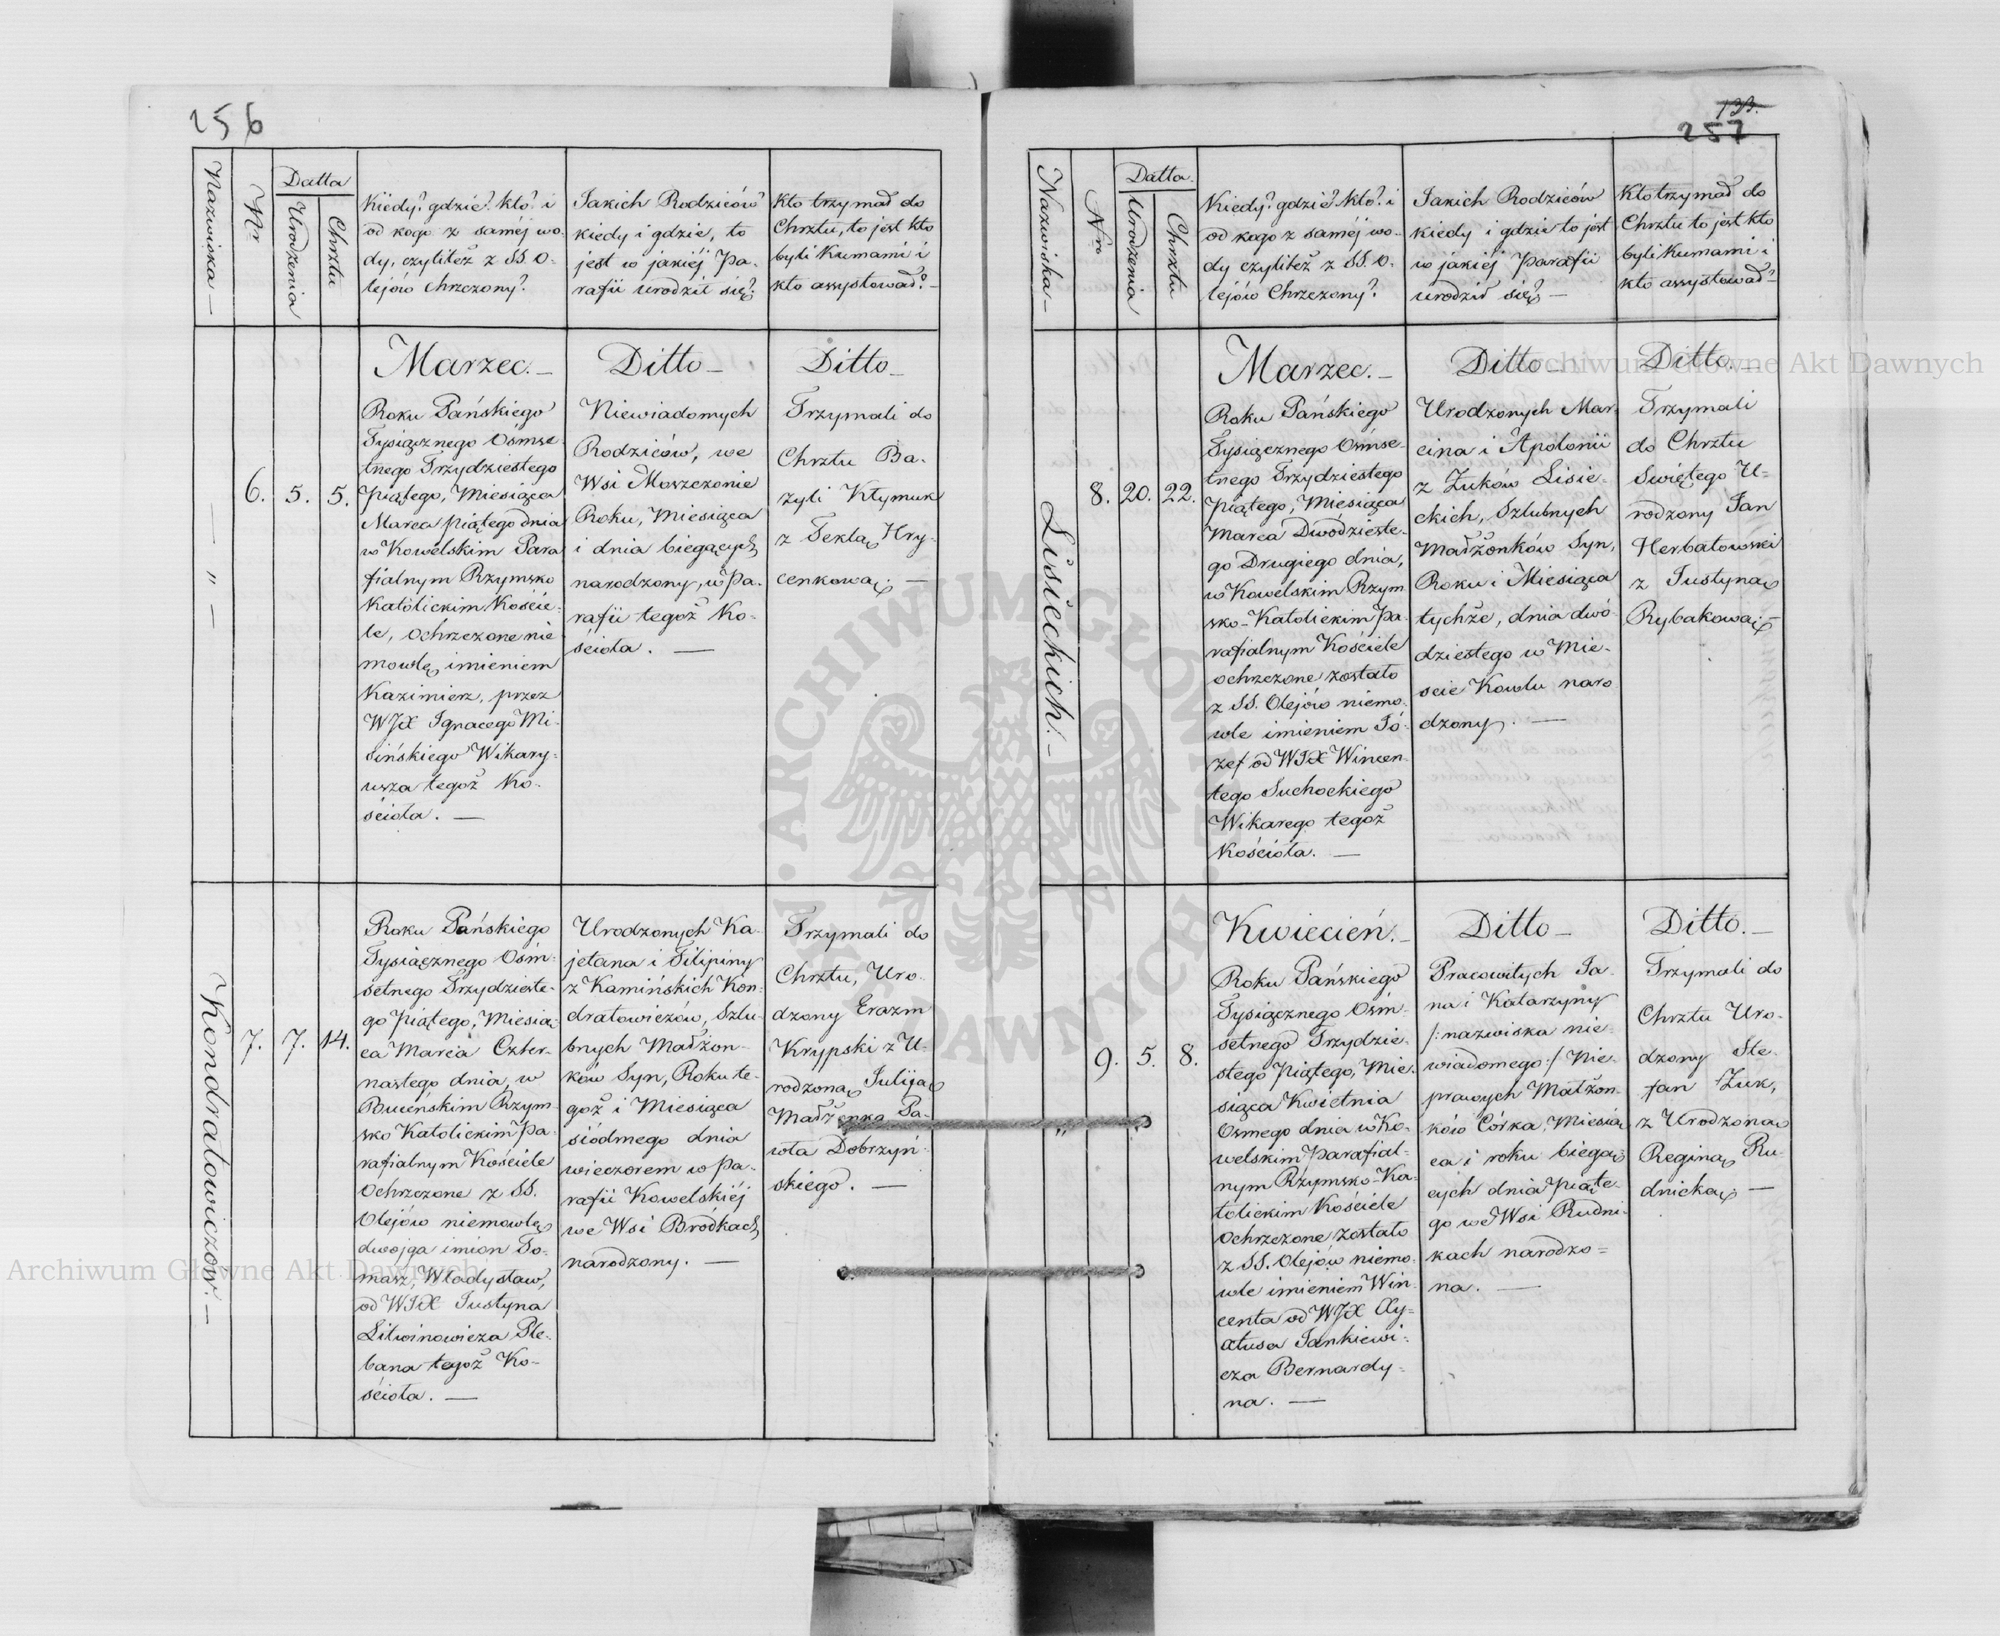 256
Nazwiska —
Nr
Datta
Urodzenia
Chrztu
Kiedy? gdzie? kto? i
od kogo z saméj wo-
dy, czyliteż z SS. O-
lejów Chrzczony?
Jakich Rodziców
kiedy i gdzie, to
jest w jakiéj Pa-
rafii urodził się?
Kto trzymał do
Chrztu, to jest kto
byli Kumami i
kto assystował? —
— „ —
6.
5.
5.
Marzec. —
Roku Pańskiego
Tysiącznego Ośmse-
tnego Trzydziestego
Piątego, Miesiąca
Marca piątego dnia
w Kowelskim Para
fialnym Rzymsko
Katolickim Koście-
le, ochrzczone nie
mowlę imieniem
Kazimierz, przez
WJX Ignacego Mi-
sińskiego Wikary-
usza tegoż Ko-
ścioła. —
Ditto —
Niewiadomych
Rodziców, we
Wsi Moszczonie
Roku, Miesiąca
i dnia biegących
narodzony, w Pa-
rafii tegoż Ko-
ścioła. —
Ditto —
Trzymali do
Chrztu Ba-
zyli Kłymuk
z Teklą Hry-
cenkową. —
Kondratowiczów. —
7.
7.
14.
Roku Pańskiego
Tysiącznego Ośm-
setnego Trzydzieste-
go Piątego, Miesią-
ca Marca Czter-
nastego dnia, w
Rzym-
sko Katolickim Pa-
rafialnym Kościele
Ochrzczone z SS.
Olejów niemowlę
dwojga imion To-
masz, Władysław,
od WJX Justyna
Litwinowicza Ple-
bana tegoż Ko-
ścioła. —
Urodzonych Ka-
jetana i Filipiny
z Kamińskich Kon-
dratowiczów, Szlu-
bnych Małżon-
ków Syn, Roku te-
goż i Miesiąca
siódmego dnia
wieczorem w Pa-
rafii Kowelskiéj
we Wsi Bródkach
narodzony. —
Trzymali do
Chrztu, Uro-
dzony Erazm
Krypski z U-
rodzoną Juliją
Małżonką Pa-
wła Dobrzyń-
skiego. —
133.
257
Nazwiska —
Nro
Datta.
Urodzenia
Chrztu
Kiedy? gdzie? kto? i
od kogo z saméj wo-
dy czyliteż z SS. O-
lejów Chrzczony?
Jakich Rodziców
kiedy i gdzie to jest
w jakiéj Parafii
urodził się —
Kto trzymał do
Chrztu to jest kto
byli Kumami i
kto assystował?
Lisieckich. —
8.
20.
22.
Marzec. —
Roku Pańskiego
Tysiącznego Ośmse-
tnego Trzydziestego
Piątego, Miesiąca
Marca Dwódzieste-
go Drugiego dnia,
w Kowelskim Rzym
sko-Katolickim Pa-
rafialnym Kościele
ochrzczone zostało
z SS. Olejów niemo-
wle imieniem Jó-
zef od WJX Wincen-
tego Suchockiego
Wikarego tegoż
Kościoła. —
Ditto —
Urodzonych Mar-
cina i Apolonii
z Żuków Lisie-
ckich, Szlubnych
Małżonków Syn,
Roku i Miesiąca
tychże, dnia dwó-
dziestego w Mie-
scie Kowlu naro
dzony. —
Ditto. —
Trzymali
do Chrztu
Swiętego U-
rodzony Jan
Herbatowski
z Justyną
Rybakową. —
„
9.
5.
8.
Kwiecień. —
Roku Pańskiego
Tysiącznego Ośm-
setnego Trzydzie-
stego Piątego, Mie-
siąca Kwietnia
Osmego dnia w Ko-
welskim Parafial-
nym Rzymsko-Ka-
tolickim Kościele
Ochrzczone zostało
z SS. Olejów niemo-
wle imieniem Win-
centa od WJX
Jankiewi-
cza Bernardy-
na. —
Ditto —
Pracowitych Ja-
na i Katarzyny
/: nazwiska nie-
wiadomego :/ Nie-
prawych Małżon-
ków Córka, Miesią
ca i roku biegą
cych dnia piąte-
go we Wsi Rudni-
kach narodzo-
na. —
Ditto. —
Trzymali do
Chrztu Uro-
dzony Ste-
fan Żuk,
z Urodzoną
Reginą Ru-
dnicką. —
Archiwum Główne Akt Dawnych
Archiwum Główne Akt Dawnych
ARCHIWUM GŁÓWNE AKT DAWNYCH